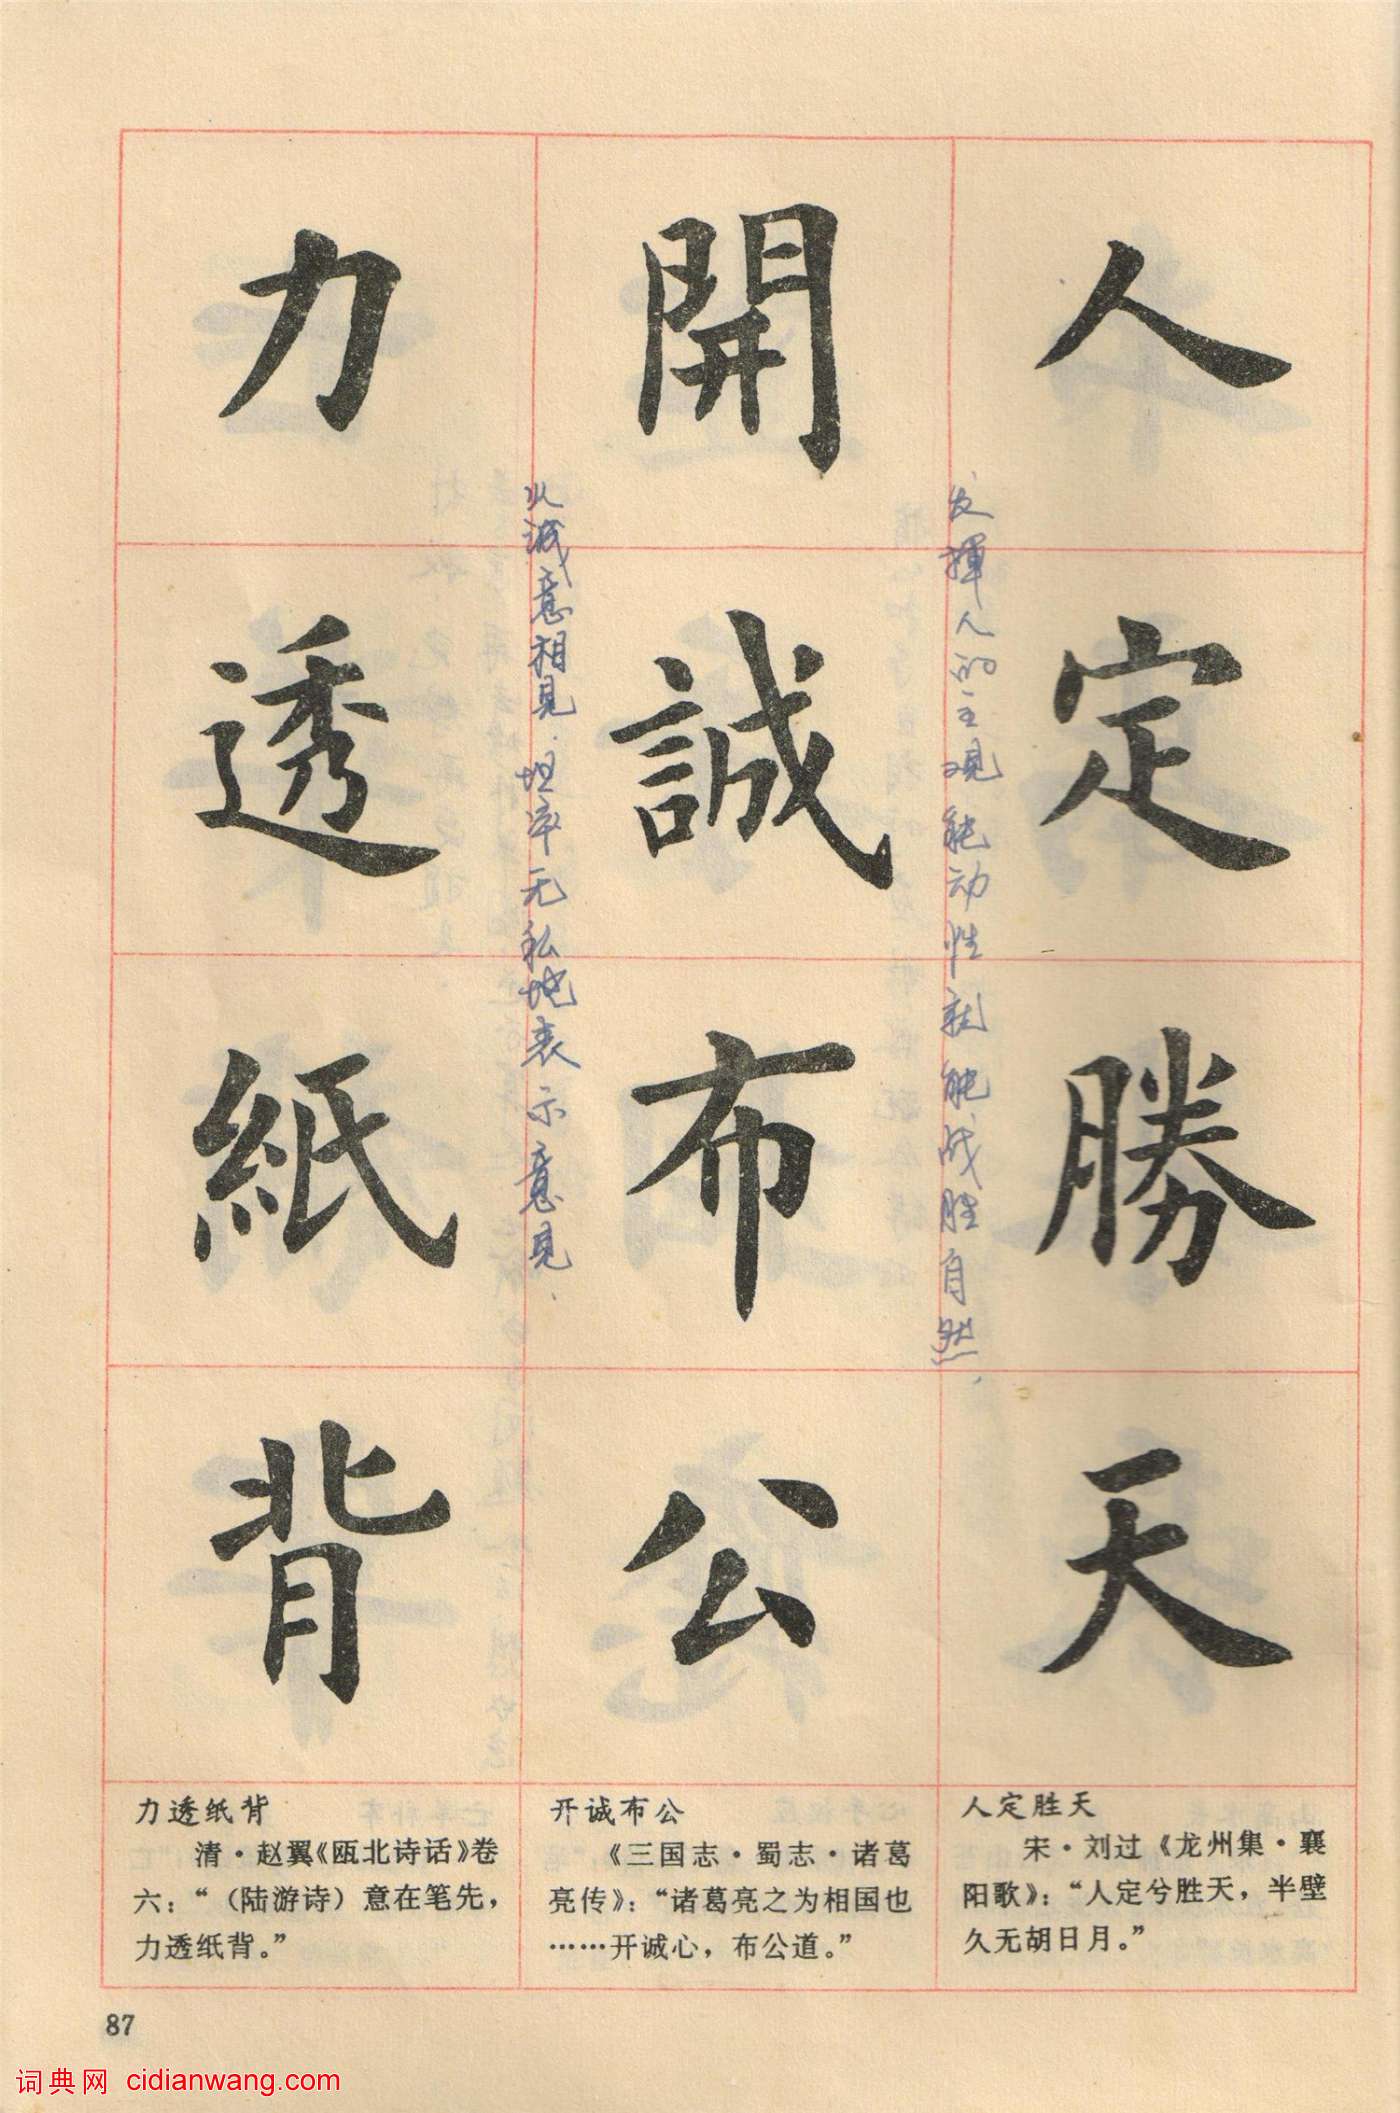 人定勝天
发揮人的主观能动性就能战胜自然、
開誠布公
以诚意相見.坦率无私地表示意見、
力透紙背
人定胜天
宋·刘过《龙州集·襄
阳歌》：“人定兮胜天，半壁
久无胡日月。”
开诚布公
《三国志·蜀志·诸葛
亮传》：“诸葛亮之为相国也
……开诚心，布公道。”
力透纸背
清·赵翼《瓯北诗话》卷
六：“（陆游诗）意在笔先，
力透纸背。”
87
词典网 cidianwang.com